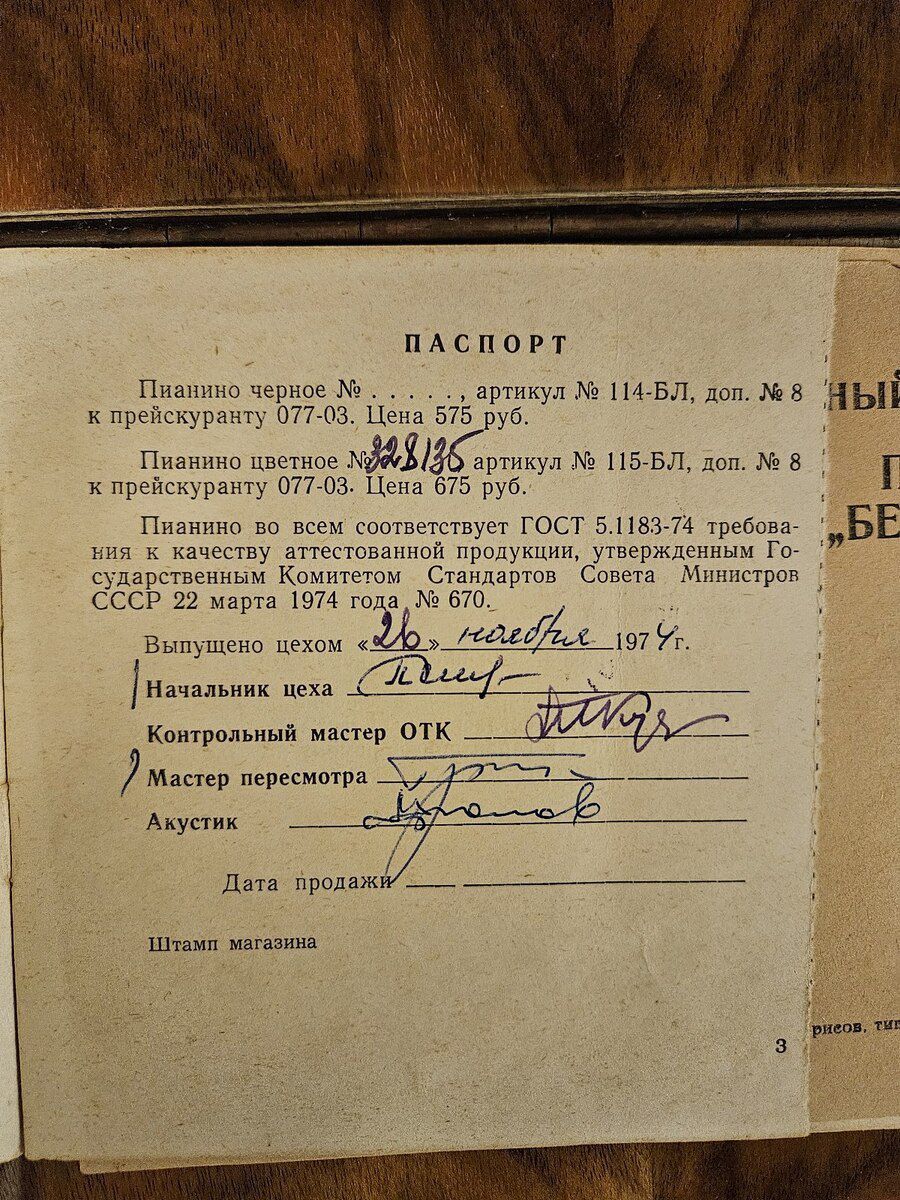 ПАСПОРТ
Пианино черное № . . . . . , артикул № 114-БЛ, доп. № 8
к прейскуранту 077-03. Цена 575 руб.
Пианино цветное № 328135 артикул № 115-БЛ, доп. № 8
к прейскуранту 077-03. Цена 675 руб.
Пианино во всем соответствует ГОСТ 5.1183-74 требова-
ния к качеству аттестованной продукции, утвержденным Го-
сударственным Комитетом Стандартов Совета Министров
СССР 22 марта 1974 года № 670.
Выпущено цехом «26» ноября 1974 г.
Начальник цеха
Контрольный мастер ОТК
Мастер пересмотра
Акустик
Дата продажи
Штамп магазина
3
НЫЙ
П
„БЕ
рисов, тип